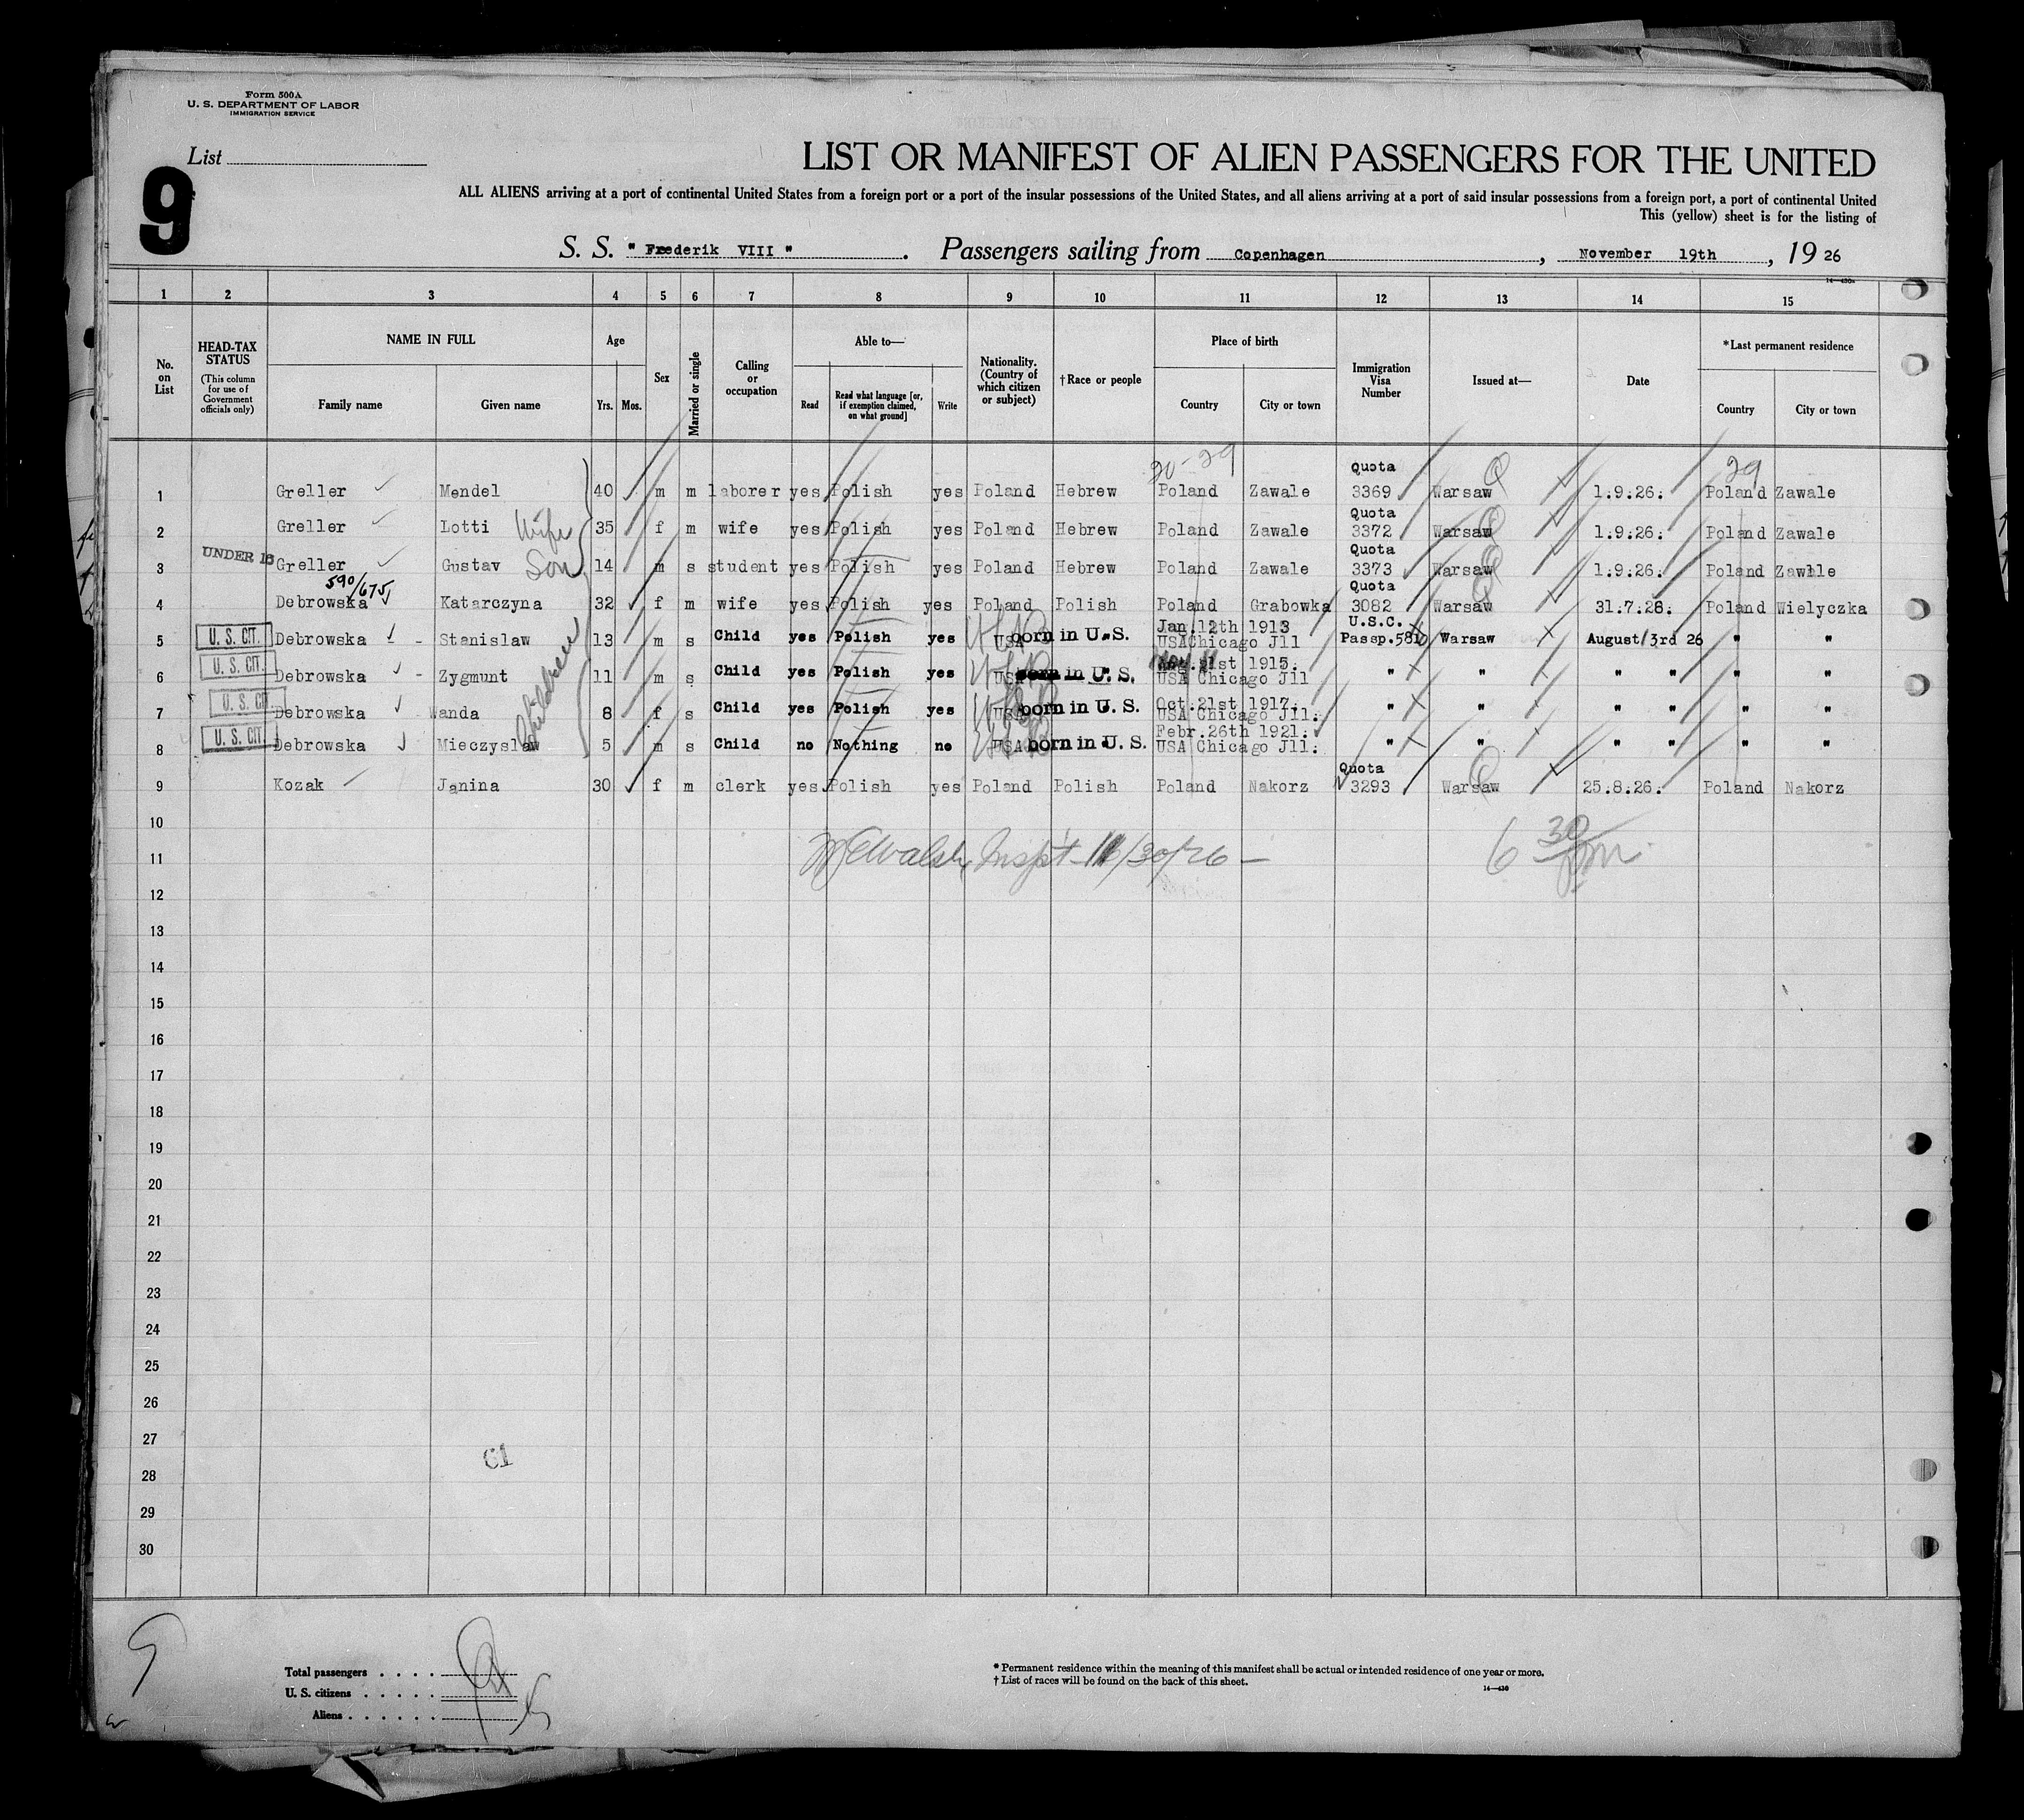 Form 500A
U. S. DEPARTMENT OF LABOR
IMMIGRATION SERVICE
List
9
LIST OR MANIFEST OF ALIEN PASSENGERS FOR THE UNITED
ALL ALIENS arriving at a port of continental United States from a foreign port or a port of the insular possessions of the United States, and all aliens arriving at a port of said insular possessions from a foreign port, a port of continental United
This (yellow) sheet is for the listing of
S. S. "Frederik VIII". Passengers sailing from Copenhagen, November 19th, 19 26
1 2 3 4 5 6 7 8 9 10 11 12 13 14 15
No. on List
HEAD-TAX STATUS (This column for use of Government officials only)
NAME IN FULL Family name Given name
Age Yrs. Mos.
Sex
Married or single
Calling or occupation
Able to— Read Read what language [or, if exemption claimed, on what ground] Write
Nationality. (Country of which citizen or subject)
†Race or people
Place of birth Country City or town
Immigration Visa Number
Issued at—
Date
*Last permanent residence Country City or town
20-29 29
1 Greller Mendel 40 m m laborer yes Polish yes Poland Hebrew Poland Zawale Quota 3369 Warsaw 1.9.26. Poland Zawale
2 Greller Lotti Wife 35 f m wife yes Polish yes Poland Hebrew Poland Zawale Quota 3372 Warsaw 1.9.26. Poland Zawale
3 UNDER 16 Greller Gustav Son 14 m s student yes Polish yes Poland Hebrew Poland Zawale Quota 3373 Warsaw 1.9.26. Poland Zawale
590/675
4 Debrowska Katarczyna 32 f m wife yes Polish yes Poland Polish Poland Grabowka Quota 3082 Warsaw 31.7.26. Poland Wielyczka
children
5 U. S. CIT. Debrowska - Stanislaw 13 m s Child yes Polish yes USA born in U.S. Jan.12th 1913 USA Chicago Jll U.S.C. Passp.5810 Warsaw August/3rd 26 " "
6 U. S. CIT. Debrowska - Zygmunt 11 m s Child yes Polish yes USA born in U. S. 21st 1915. USA Chicago Jll " " " " " "
7 U. S. CIT. Debrowska Wanda 8 f s Child yes Polish yes USA born in U. S. Oct.21st 1917. USA Chicago Jll. " " " " " "
8 U. S. CIT. Debrowska Mieczyslaw 5 m s Child no Nothing no USA born in U. S. Febr.26th 1921. USA Chicago Jll. " " " " " "
9 Kozak Janina 30 f m clerk yes Polish yes Poland Polish Poland Nakorz Quota 3293 Warsaw 25.8.26. Poland Nakorz
10
11 Walsh, Insp't 11/30/26 — 6 30 pm
12
13
14
15
16
17
18
19
20
21
22
23
24
25
26
27
28
29
30
9
Total passengers . . . .
U. S. citizens . . . . .
Aliens . . . . . .
* Permanent residence within the meaning of this manifest shall be actual or intended residence of one year or more.
† List of races will be found on the back of this sheet.
14—430